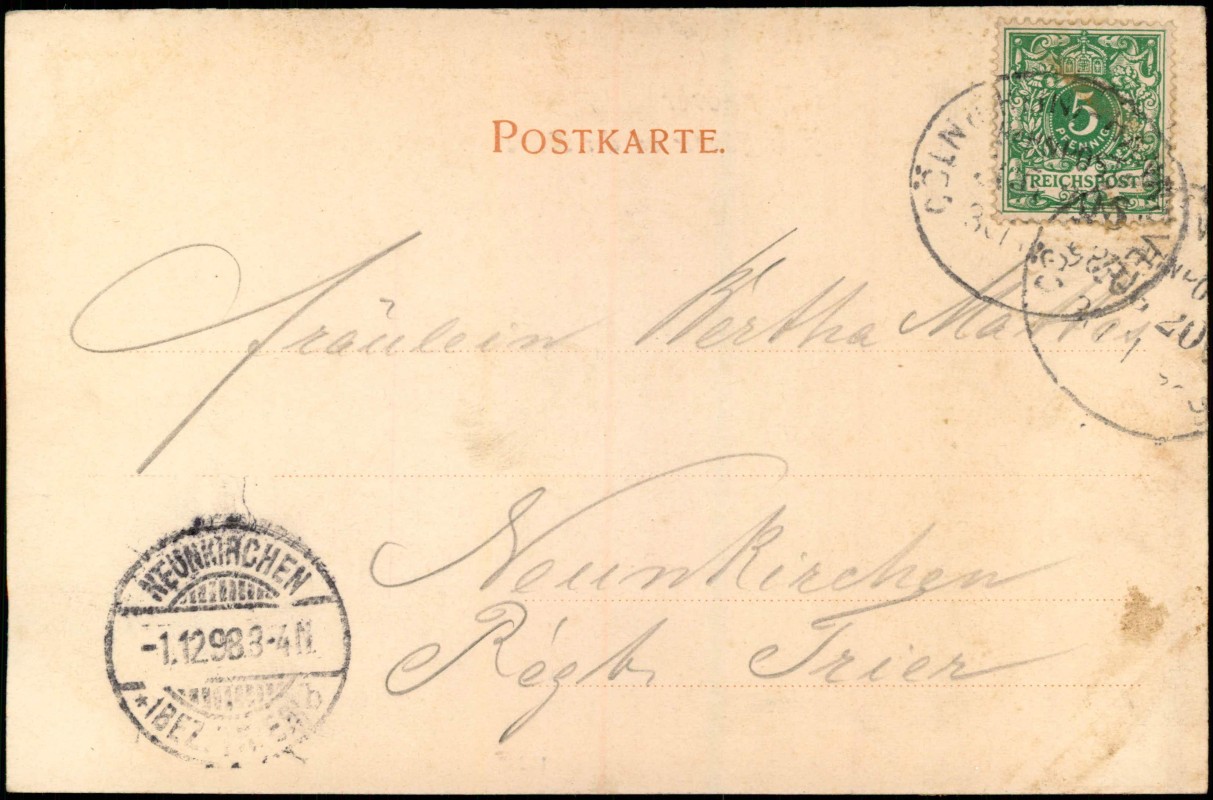 POSTKARTE.
5
PFENNIG
REICHSPOST
CÖLN
Fräulein Bertha Mattes
Neunkirchen
Régb. Trier
NEUNKIRCHEN
-1.12.98.3-4N.
*(BEZ. TRIER) b